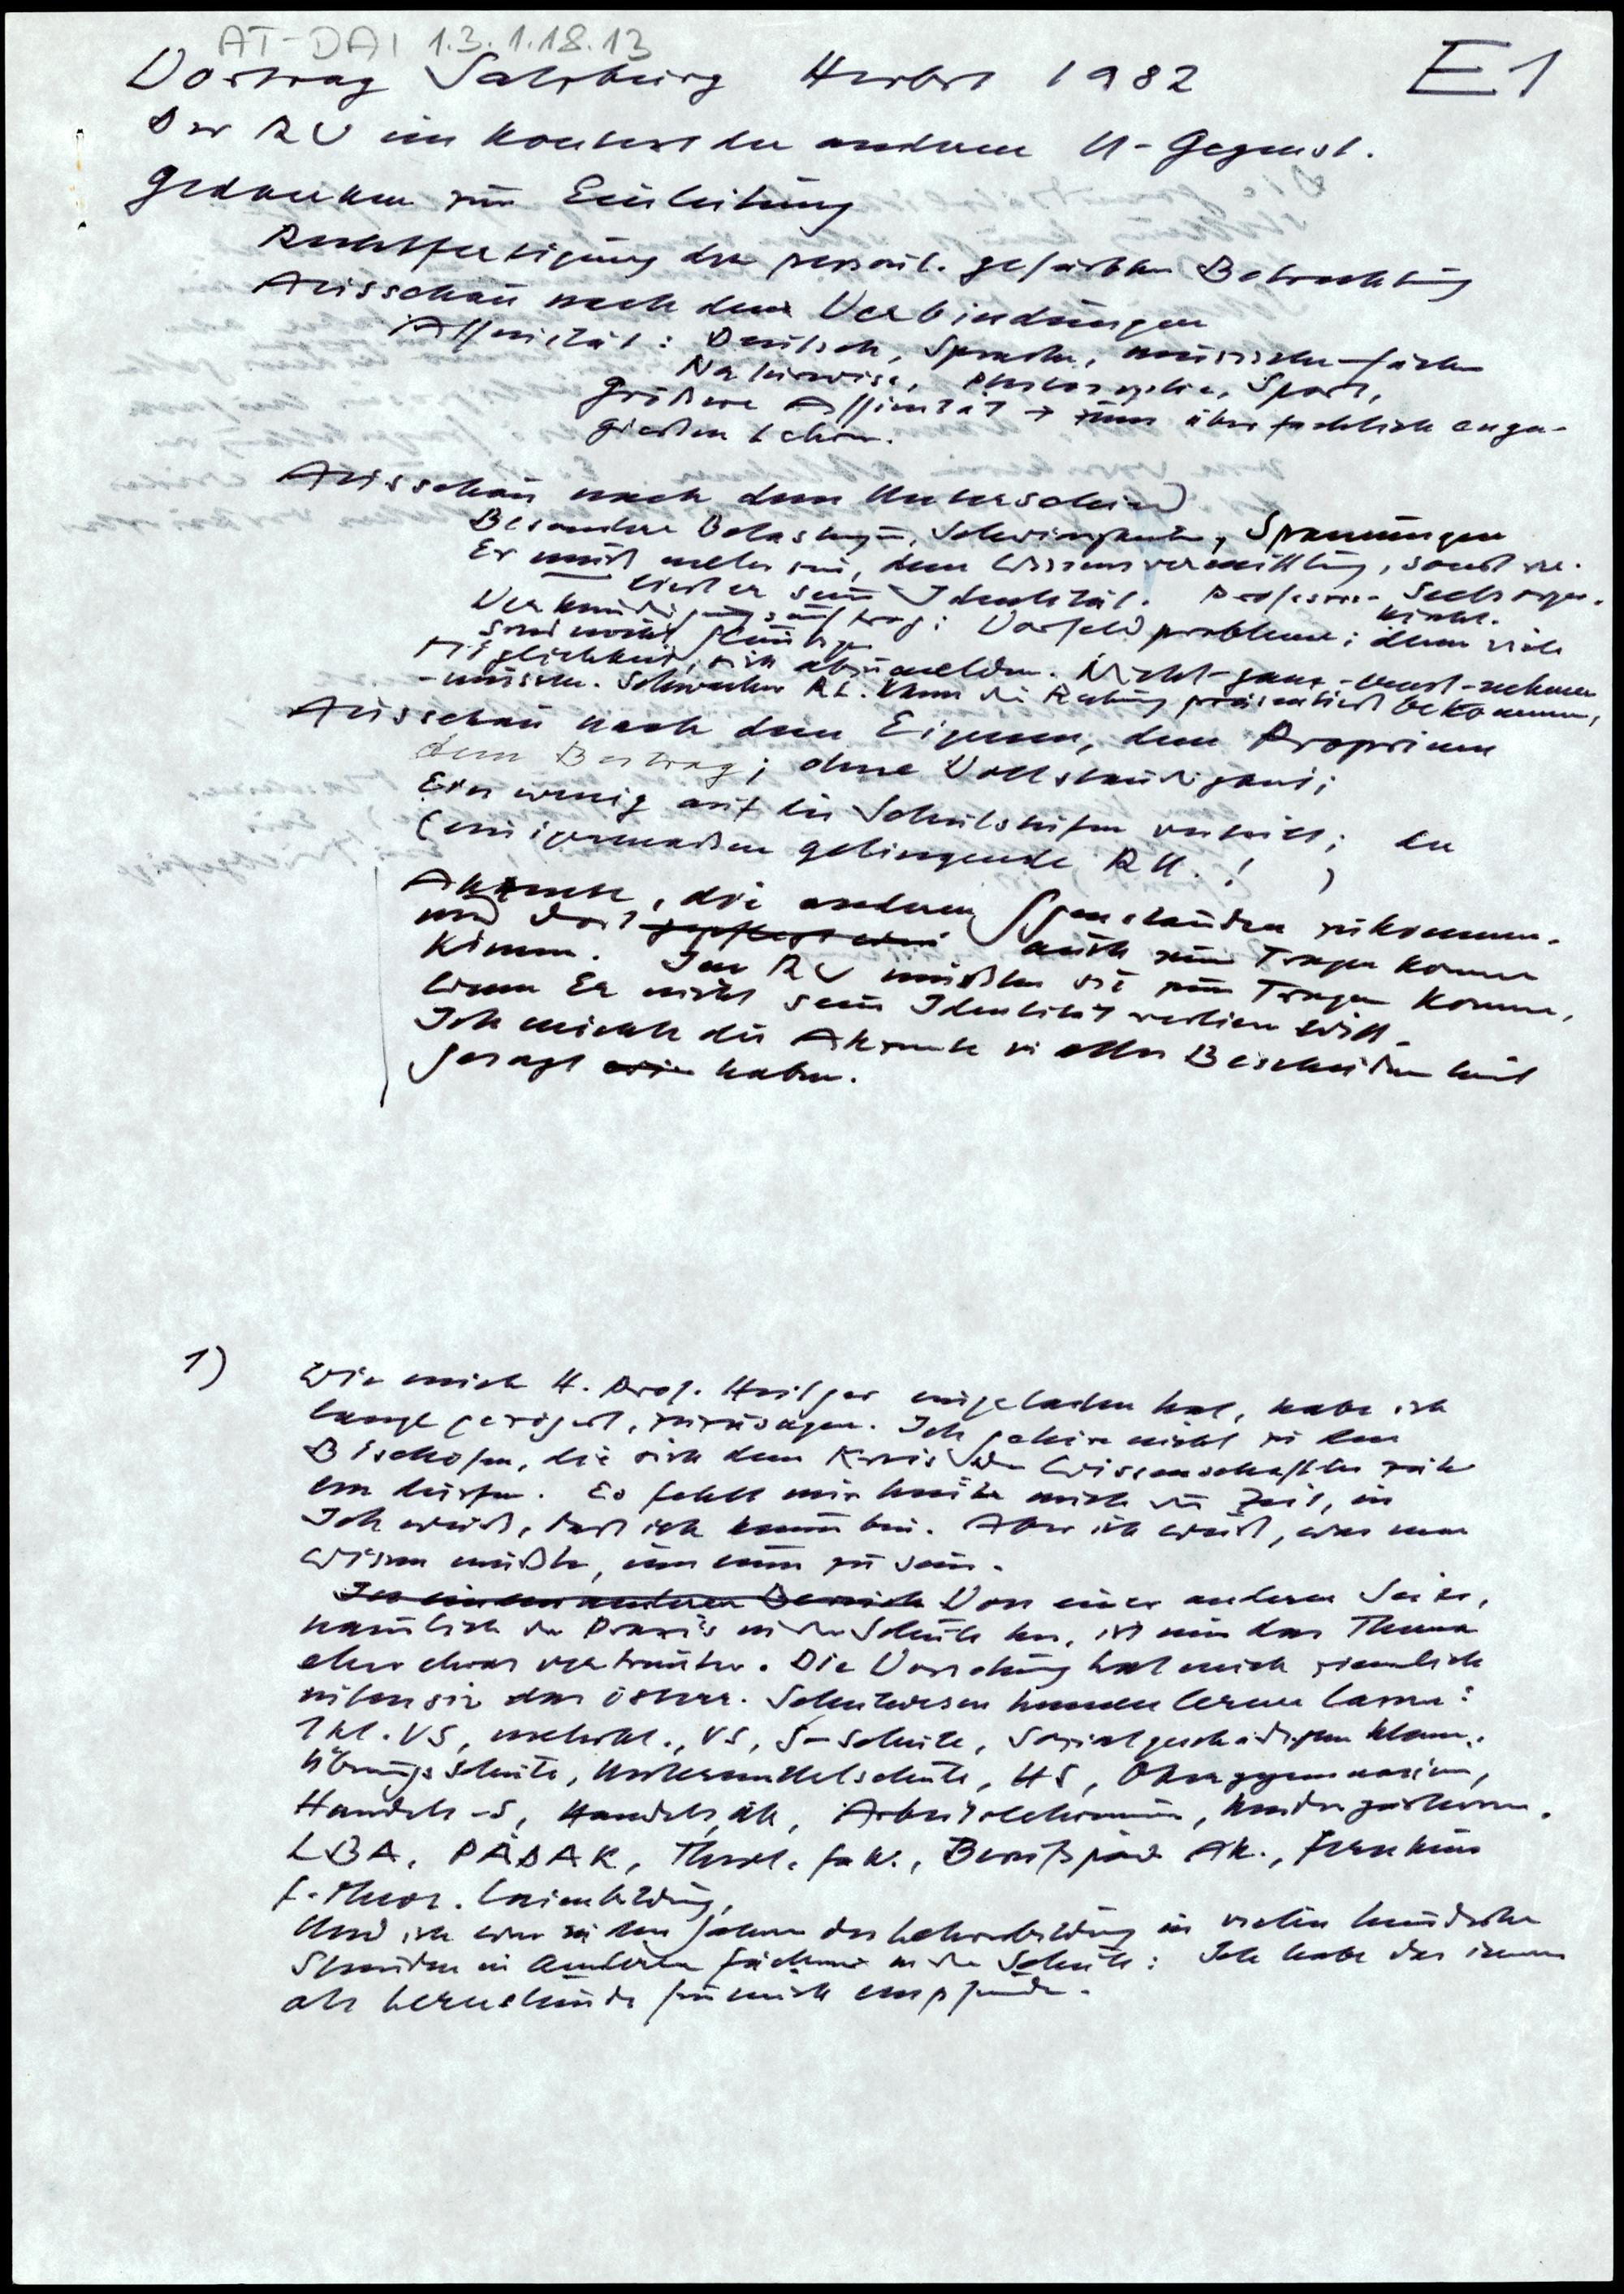 AT-DAI 1.3.1.18.13
Vortrag Salzburg Herbst 1982 E1
Der RU im Kontext der anderen U-Gegenst.
Gedanken zur Einleitung
Rechtfertigung der persönl. gefärbten Betrachtung
Ausschau nach den Verbindungen
Affinität: Deutsch, Sprache, musische Fächer
Naturwiss, Philosophie, Sport,
Größere Affinität → zum überfachlich enga-
gierten Lehrer.
Ausschau nach dem Unterscheid
Besondere Belastungen, Schwierigkeiten, Spannungen
Er muß mehr sein, denn Wissensvermittlung, sonst ver-
liert er seine Identität. Professor - Seelsorger.
Verkündigungsauftrag: Vorfeldprobleme: denn viele
nicht.
sind nicht gläubig
Möglichkeit, sich abzumelden. Nicht-ganz-ernst-nehmen
-müssen. Schwacher RL. kann die Rechnung präsentiert bekommen,
Ausschau nach dem Eigenen, dem Proprium
dem Beitrag; ohne Vollständigkeit;
Ein wenig auf die Schulstufen verteilt; der
(einigermaßen gelingende RU.!)
Akzente, die anderen Gegenständen zukommen.
und dort gepflegt wird auch zum Tragen kommen
können. Im RU müßten sie zum Tragen kommen,
wenn Er nicht seine Identität verlieren will.
Ich möchte die Akzente in aller Bescheidenheit
gesagt haben.
1) Wie mich H. Prof. Hilger eingeladen hat, habe ich
lange gezögert, zuzusagen. Ich gehöre nicht zu den
Bischöfen, die sich dem Kreis der Wissenschaftler zähl
en dürfen. Es fehlt mir heute auch die Zeit,
Ich weiß, daß ich keiner bin. Aber ich weiß, was man
wissen müßte, um einer zu sein.
In einem anderen Bereich Von einer anderen Seite,
nämlich der Praxis in der Schule her, ist mir das Thema
eher etwas vertrauter. Die Vorsehung hat mich ziemlich
intensiv das österr. Schulwesen kennen lernen lassen:
1 kl. VS, mehrkl., VS, S-Schule, Sozialgeschädigten Klassen.
Übungsschule, Untermittelschule, HS, Obergymnasium,
Handels-S, Handelsak, Arbeitslehrerinnen, Kindergärtnerinnen.
LBA, PÄDAK, Theol. Fak., Berufspäd Ak., Fernkurs
f. theol. Laienbildung,
Und ich war in den Jahren der Lehrerbildung in vielen hunderten
Stunden in anderen Fächern in der Schule: Ich habe das immer
als Lernstunde für mich empfunden.